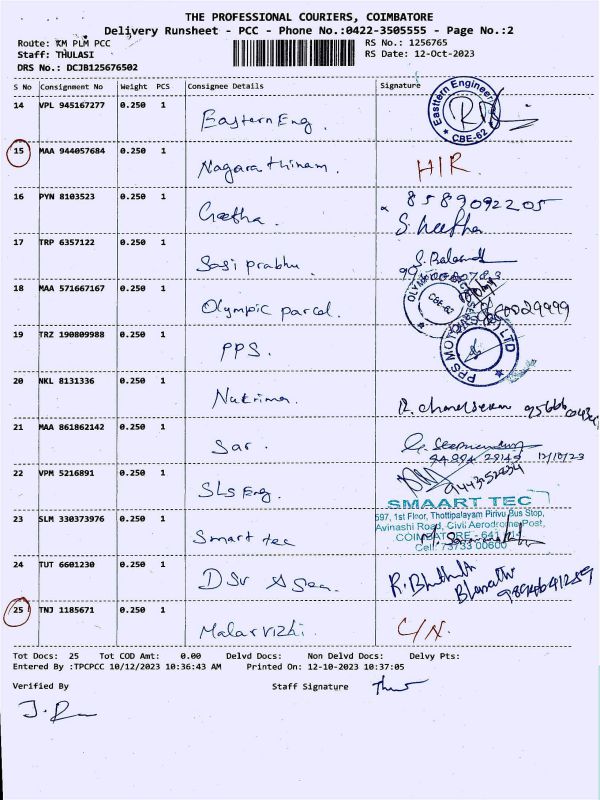 THE PROFESSIONAL COURIERS, COIMBATORE
Delivery Runsheet - PCC - Phone No.:0422-3505555 - Page No.:2
Route: KM PLM PCC RS No.: 1256765
Staff: THULASI RS Date: 12-Oct-2023
DRS No.: DCJB125676502
S No Consignment No Weight PCS Consignee Details Signature
14 VPL 945167277 0.250 1 Eastern Eng. Easttern Engineer CBE-62
15 MAA 944057684 0.250 1 Nagarathinam. H/R.
16 PYN 8103523 0.250 1 Geetha. 8589092205
S. Neetha
17 TRP 6357122 0.250 1 Sasi prabhu.
18 MAA 571667167 0.250 1 Olympic parcel. CBE-62
19 TRZ 190809988 0.250 1 PPS. PPS MOTORS LTD
20 NKL 8131336 0.250 1 Nutrima.
21 MAA 861862142 0.250 1 Sar. 12/10/23
22 VPM 5216891 0.250 1 SLS Eng.
23 SLM 330373976 0.250 1 Smart tec SMAART TEC
597, 1st Floor, Thottipalayam Pirivu Bus Stop,
Avinashi Road, Civil Aerodrome Post,
COIMBATORE - 641
Cell: 73733 00600
24 TUT 6601230 0.250 1 DSV A Sea. R. Bharathi
25 TNJ 1185671 0.250 1 Malarvizhi. C/N.
Tot Docs: 25 Tot COD Amt: 0.00 Delvd Docs: Non Delvd Docs: Delvy Pts:
Entered By :TPCPCC 10/12/2023 10:36:43 AM Printed On: 12-10-2023 10:37:05
Verified By Staff Signature